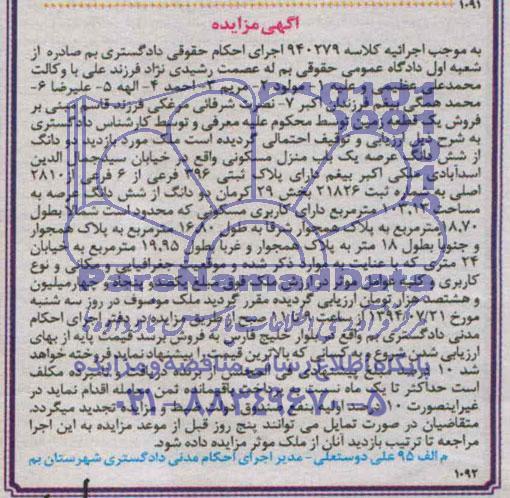 ۱۰۹۱
آگهی مزایده
به موجب اجرائیه کلاسه ۹۴۰۲۷۹ اجرای احکام حقوقی دادگستری بم صادره از
شعبه اول دادگاه عمومی حقوقی بم له عصمت رشیدی نژاد فرزند علی با وکالت
محمدعلی علیه ۱- مولود ۲- مریم ۳- احمد ۴- الهه ۵- علیرضا ۶-
محمد همگی فرزندان اکبر ۷- شرفائی مرغکی فرزند مبنی بر
فروش یک قطعه زمین توسط محکوم علیه معرفی و توسط کارشناس دادگستری
به شرح ذیل ارزیابی و توقیف احتمالی گردیده است ملک مورد بازدید دو دانگ
از شش دانگ عرصه یک باب منزل مسکونی واقع در خیابان سیدجمال الدین
اسدآبادی ملکی اکبر بیغم دارای پلاک ثبتی ۳۹۶ فرعی از ۶ فرعی از ۲۸۱۰
اصلی به شماره ثبت ۲۱۸۲۶ بخش ۲۹ کرمان دو دانگ از شش دانگ عرصه به
مساحت مترمربع دارای کاربری مسکونی که محدود است شمالا بطول
۸.۷۰ مترمربع به پلاک همجوار شرقا به طول مترمربع به پلاک همجوار
و جنوبا بطول ۱۸ متر به پلاک همجوار و غربا بطول ۱۹.۹۵ مترمربع به خیابان
۲۴ متری که با عنایت به موارد ذکر شده و موقعیت جغرافیایی و مکانی و نوع
کاربری و کلیه عوامل موثر در ارزش ملک فوق مبلغ یکصد و پنجاه و چهار میلیون
و هشتصد هزار تومان ارزیابی گردیده مقرر گردید ملک موصوف در روز سه شنبه
مورخ ۱۳۹۴/۰۷/۲۱ از ساعت ۹ الی صبح از طریق مزایده در دفتر اجرای احکام
مدنی دادگستری بم واقع در بلوار خلیج فارس به فروش برسد قیمت پایه از بهای
ارزیابی شده شروع و به کسانی که بالاترین قیمت را پیشنهاد نماید فروخته خواهد
شد ۱۰ درصد دریافت مکلف
است حداکثر تا یک ماه نسبت به پرداخت باقیمانده ثمن معامله اقدام نماید در
غیراینصورت ۱۰ درصد اولیه بنفع صندوق دولت ضبط و مزایده تجدید میگردد.
متقاضیان در صورت تمایل می توانند پنج روز قبل از موعد مزایده به این اجرا
مراجعه تا ترتیب بازدید آنان از ملک موثر مزایده داده شود.
م الف ۹۵ علی دوستعلی- مدیر اجرای احکام مدنی دادگستری شهرستان بم
۱۰۹۲
ParsNamadData
پایگاه اطلاع رسانی مناقصه و مزایده
۰۲۱-۸۸۳۴۹۶۷۰-۵